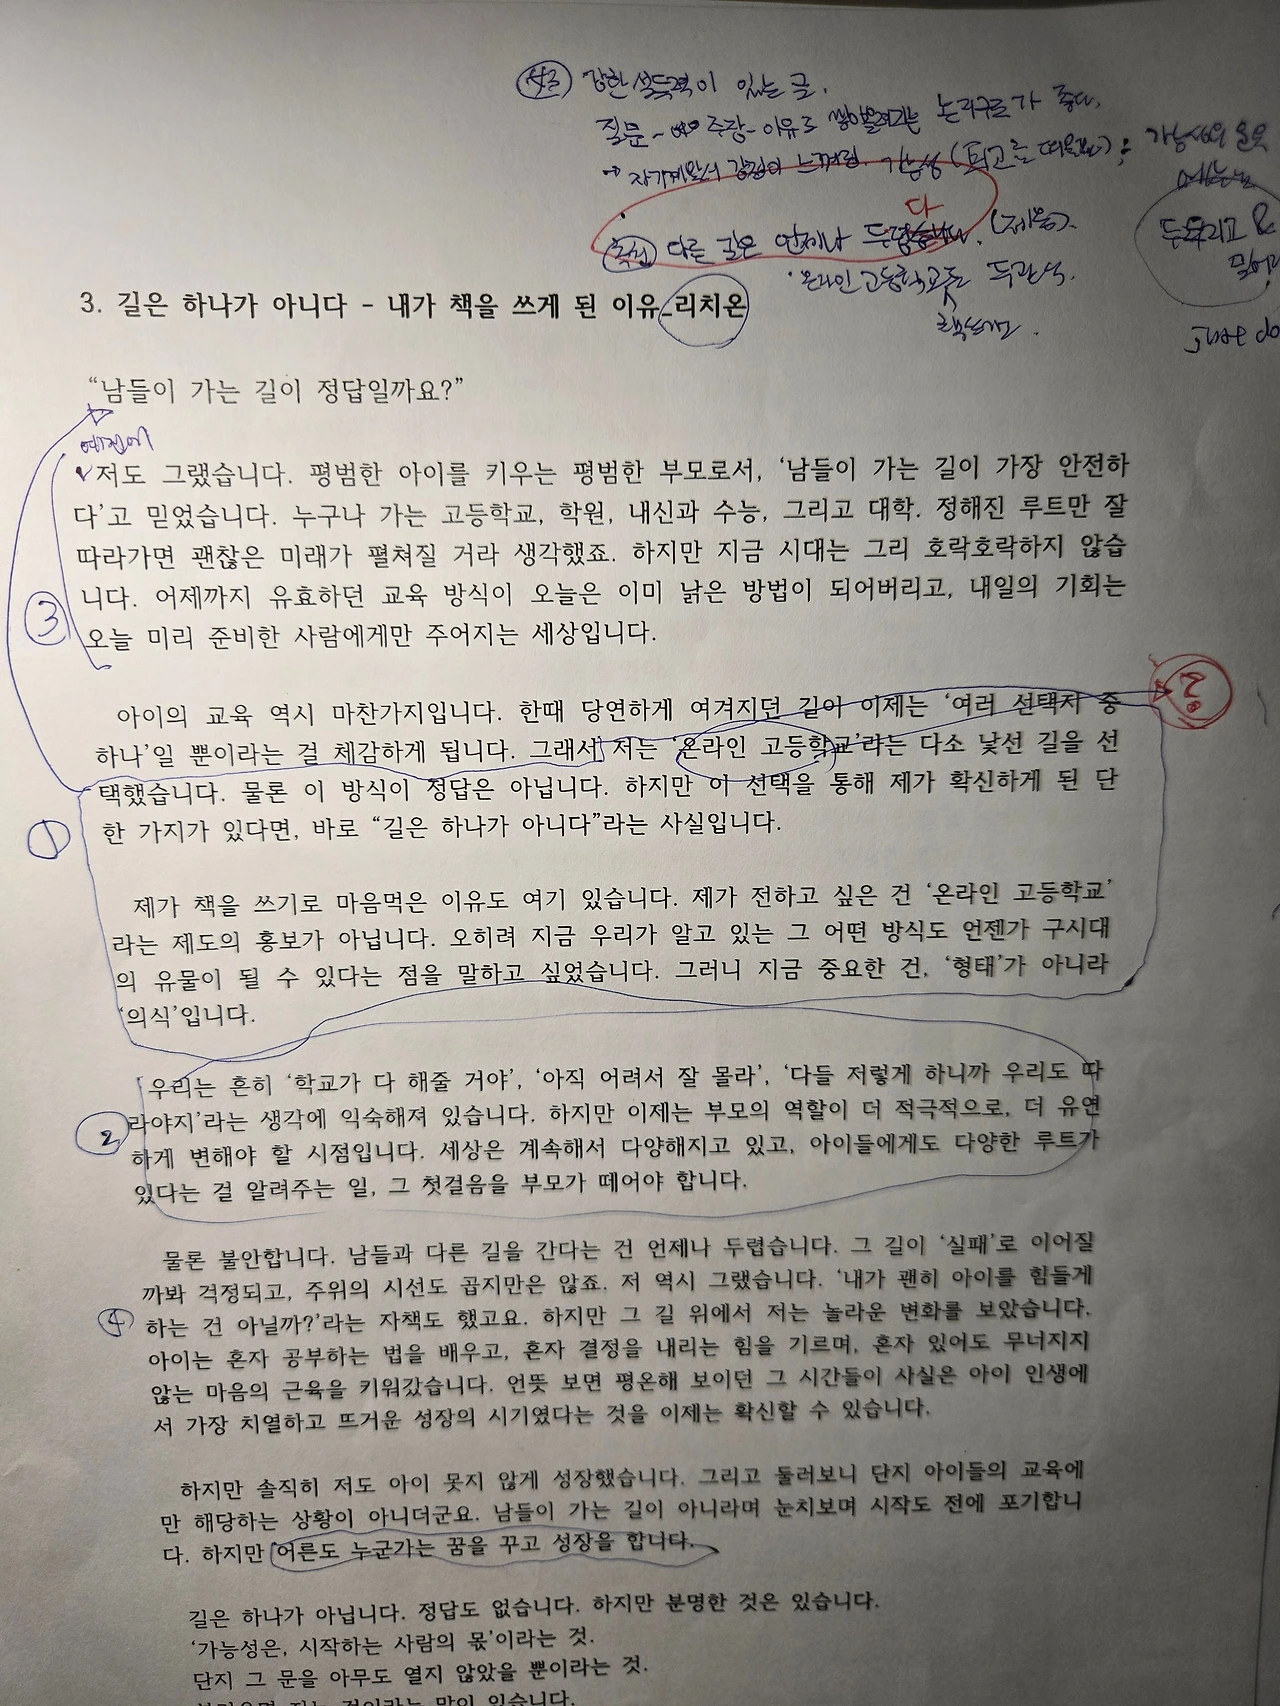 강한 설득력이 있는 글.
질문 - 주장 - 이유로 쌓아올려가는 논리구조가 좋다.
가능성
다
다른 길은 언제나 두렵 (제목).
온라인 고등학교
3. 길은 하나가 아니다 - 내가 책을 쓰게 된 이유_리치온
“남들이 가는 길이 정답일까요?”
예전에
저도 그랬습니다. 평범한 아이를 키우는 평범한 부모로서, ‘남들이 가는 길이 가장 안전하
다’고 믿었습니다. 누구나 가는 고등학교, 학원, 내신과 수능, 그리고 대학. 정해진 루트만 잘
따라가면 괜찮은 미래가 펼쳐질 거라 생각했죠. 하지만 지금 시대는 그리 호락호락하지 않습
니다. 어제까지 유효하던 교육 방식이 오늘은 이미 낡은 방법이 되어버리고, 내일의 기회는
③
오늘 미리 준비한 사람에게만 주어지는 세상입니다.
아이의 교육 역시 마찬가지입니다. 한때 당연하게 여겨지던 길이 이제는 ‘여러 선택지 중
하나’일 뿐이라는 걸 체감하게 됩니다. 그래서 저는 ‘온라인 고등학교’라는 다소 낯선 길을 선
택했습니다. 물론 이 방식이 정답은 아닙니다. 하지만 이 선택을 통해 제가 확신하게 된 단
①
한 가지가 있다면, 바로 “길은 하나가 아니다”라는 사실입니다.
제가 책을 쓰기로 마음먹은 이유도 여기 있습니다. 제가 전하고 싶은 건 ‘온라인 고등학교’
라는 제도의 홍보가 아닙니다. 오히려 지금 우리가 알고 있는 그 어떤 방식도 언젠가 구시대
의 유물이 될 수 있다는 점을 말하고 싶었습니다. 그러니 지금 중요한 건, ‘형태’가 아니라
‘의식’입니다.
우리는 흔히 ‘학교가 다 해줄 거야’, ‘아직 어려서 잘 몰라’, ‘다들 저렇게 하니까 우리도 따
②
라야지’라는 생각에 익숙해져 있습니다. 하지만 이제는 부모의 역할이 더 적극적으로, 더 유연
하게 변해야 할 시점입니다. 세상은 계속해서 다양해지고 있고, 아이들에게도 다양한 루트가
있다는 걸 알려주는 일, 그 첫걸음을 부모가 떼어야 합니다.
물론 불안합니다. 남들과 다른 길을 간다는 건 언제나 두렵습니다. 그 길이 ‘실패’로 이어질
까봐 걱정되고, 주위의 시선도 곱지만은 않죠. 저 역시 그랬습니다. ‘내가 괜히 아이를 힘들게
④
하는 건 아닐까?’라는 자책도 했고요. 하지만 그 길 위에서 저는 놀라운 변화를 보았습니다.
아이는 혼자 공부하는 법을 배우고, 혼자 결정을 내리는 힘을 기르며, 혼자 있어도 무너지지
않는 마음의 근육을 키워갔습니다. 언뜻 보면 평온해 보이던 그 시간들이 사실은 아이 인생에
서 가장 치열하고 뜨거운 성장의 시기였다는 것을 이제는 확신할 수 있습니다.
하지만 솔직히 저도 아이 못지 않게 성장했습니다. 그리고 둘러보니 단지 아이들의 교육에
만 해당하는 상황이 아니더군요. 남들이 가는 길이 아니라며 눈치보며 시작도 전에 포기합니
다. 하지만 어른도 누군가는 꿈을 꾸고 성장을 합니다.
길은 하나가 아닙니다. 정답도 없습니다. 하지만 분명한 것은 있습니다.
‘가능성은, 시작하는 사람의 몫’이라는 것.
단지 그 문을 아무도 열지 않았을 뿐이라는 것.